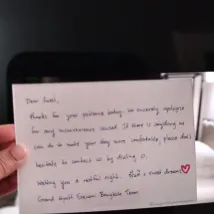 Dear Guest,
Thanks for your patience today. We sincerely apologize
for any inconvenience caused. If there is anything we
can do to make your stay more comfortable, please don't
hesitate to contact us by dialing 0.
Wishing you a restful night. Rest & sweet dreams
Grand Hyatt Erawan Bangkok Team